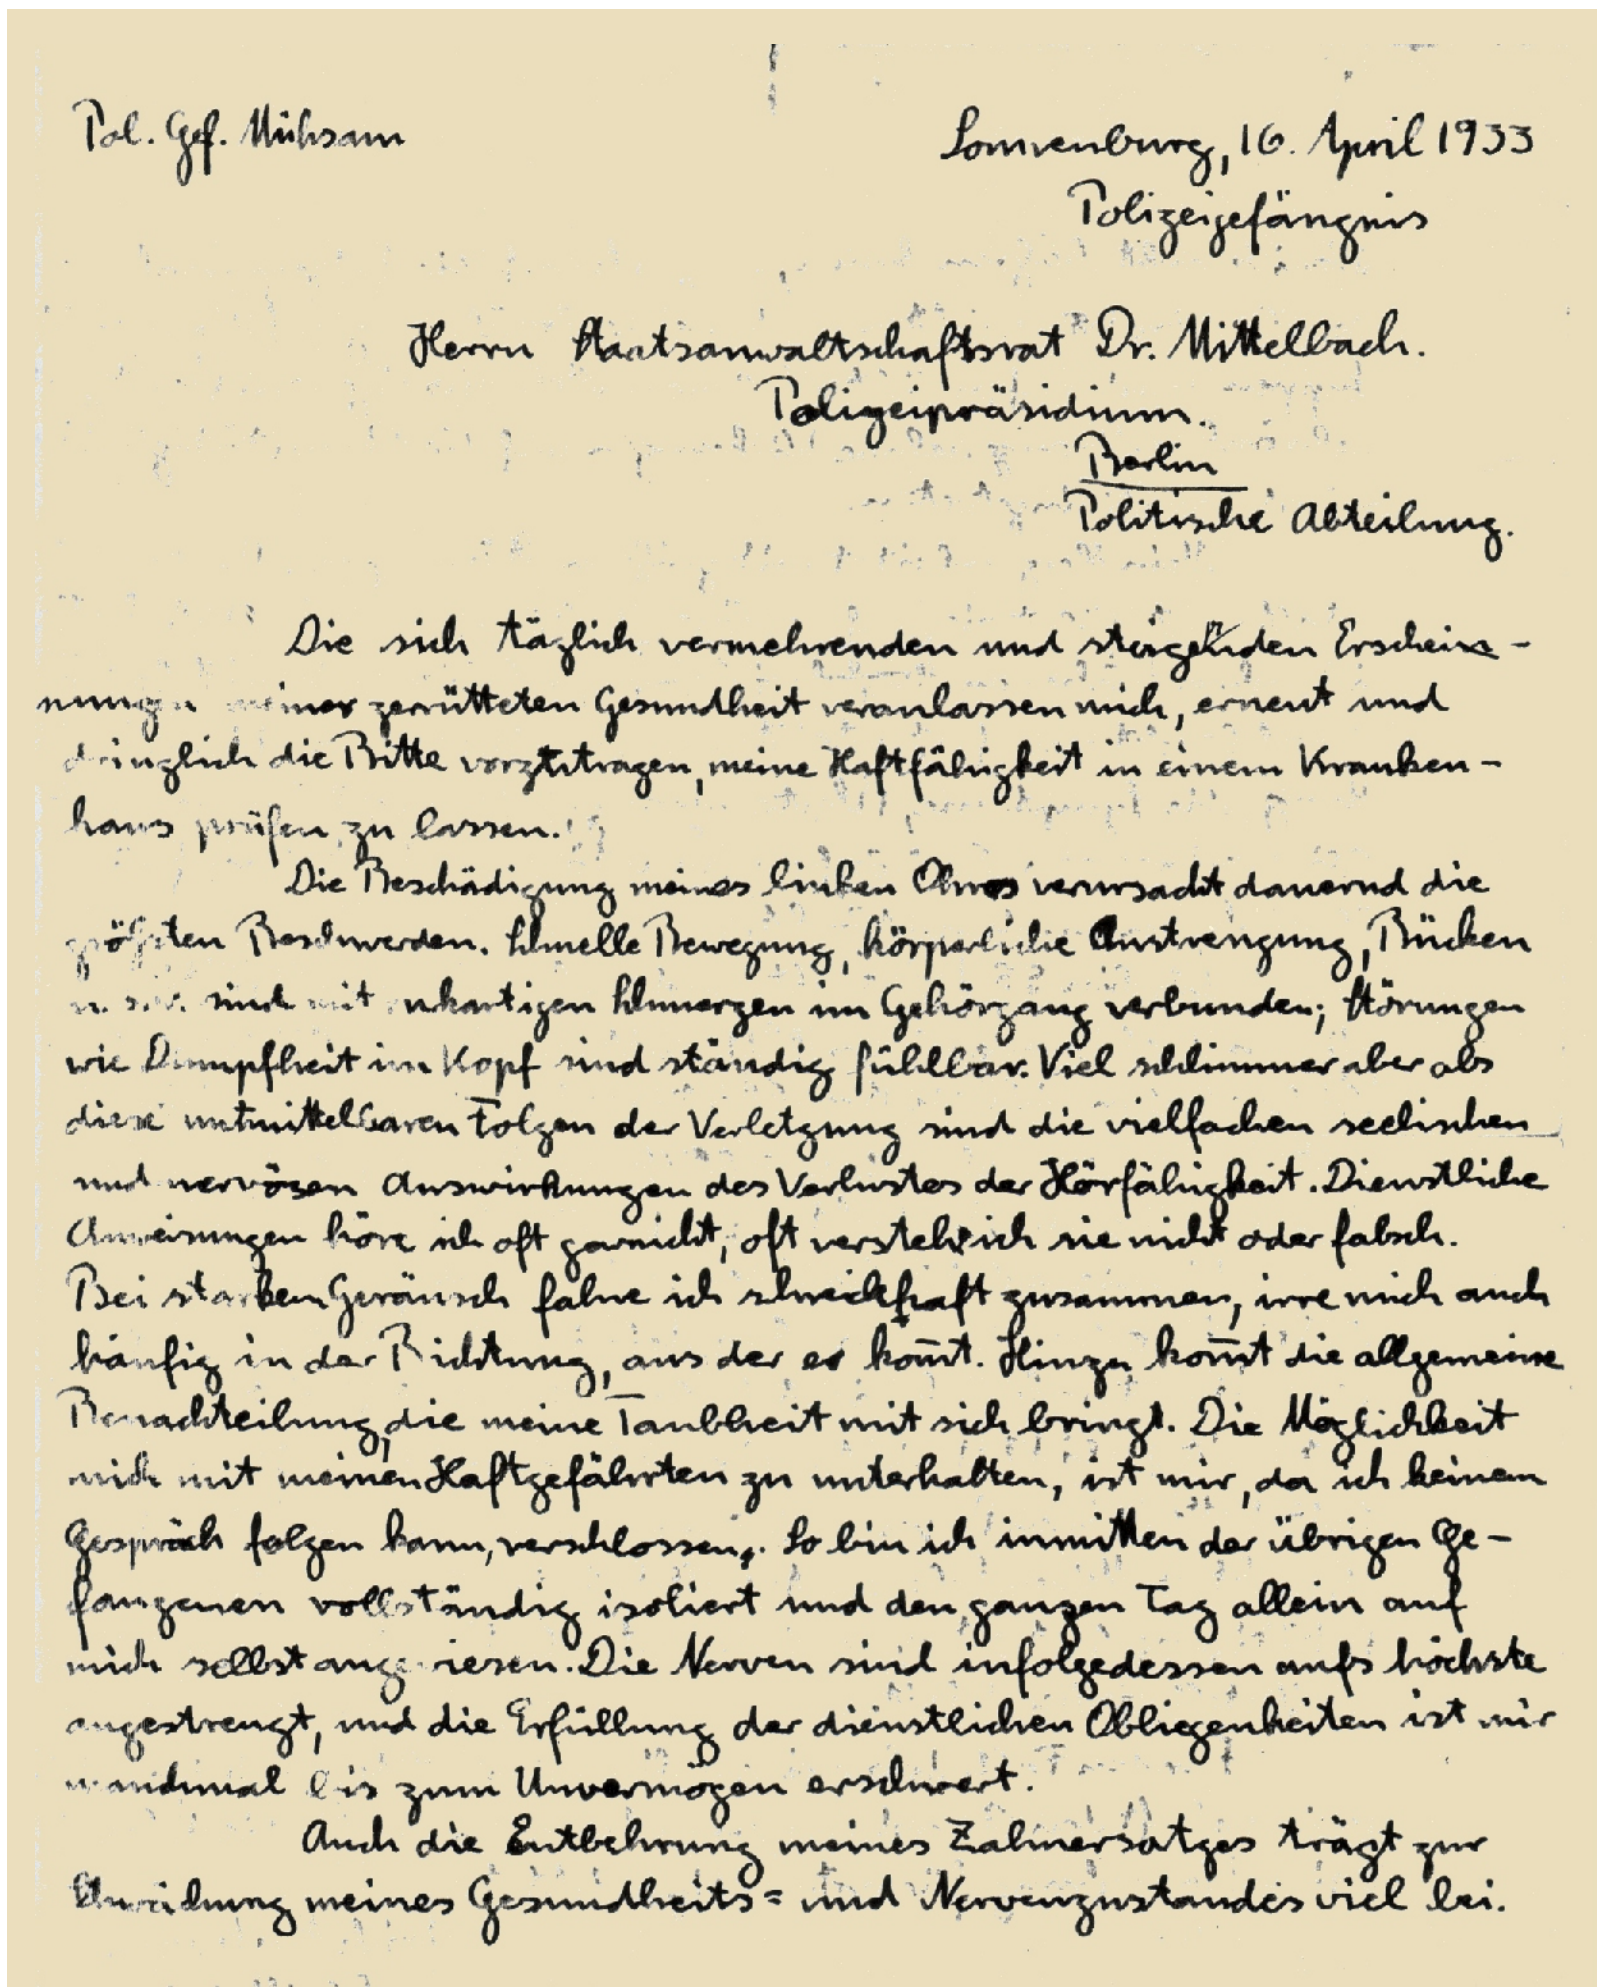 Pol. Gef. Mühsam
Sonnenburg, 16. April 1933
Polizeigefängnis
Herrn Staatsanwaltschaftsrat Dr. Mittelbach.
Polizeipräsidium.
Berlin
Politische Abteilung.
Die sich täglich vermehrenden und steigenden Erschei-
nungen meiner zerrütteten Gesundheit veranlassen mich, erneut und
dringlich die Bitte vorzutragen, meine Haftfähigkeit in einem Kranken-
haus prüfen zu lassen.
Die Beschädigung meines linken Ohres verursacht dauernd die
größten Beschwerden. Schnelle Bewegung, körperliche Anstrengung, Bücken
u. s. w. sind mit Schmerzen im Gehörgang verbunden; Störungen
wie Dumpfheit im Kopf sind ständig fühlbar. Viel schlimmer aber als
diese unmittelbaren Folgen der Verletzung sind die vielfachen seelischen
und nervösen Auswirkungen des Verlustes der Hörfähigkeit. Dienstliche
Anweisungen höre ich oft garnicht, oft versteh ich sie nicht oder falsch.
Bei starkem Geräusch fahre ich schreckhaft zusammen, irre mich auch
häufig in der Richtung, aus der es kom̅t. Hinzu kom̅t die allgemeine
Benachteilung, die meine Taubheit mit sich bringt. Die Möglichkeit
mich mit meinen Haftgefährten zu unterhalten, ist mir, da ich keinem
Gespräch folgen kann, verschlossen. So bin ich inmitten der übrigen Ge-
fangenen vollständig isoliert und den ganzen Tag allein auf
mich selbst angewiesen. Die Nerven sind infolgedessen aufs höchste
angestrengt, und die Erfüllung der dienstlichen Obliegenheiten ist mir
manchmal bis zum Unvermögen erschwert.
Auch die Entbehrung meines Zahnersatzes trägt zur
Schwächung meines Gesundheits= und Nervenzustandes viel bei.